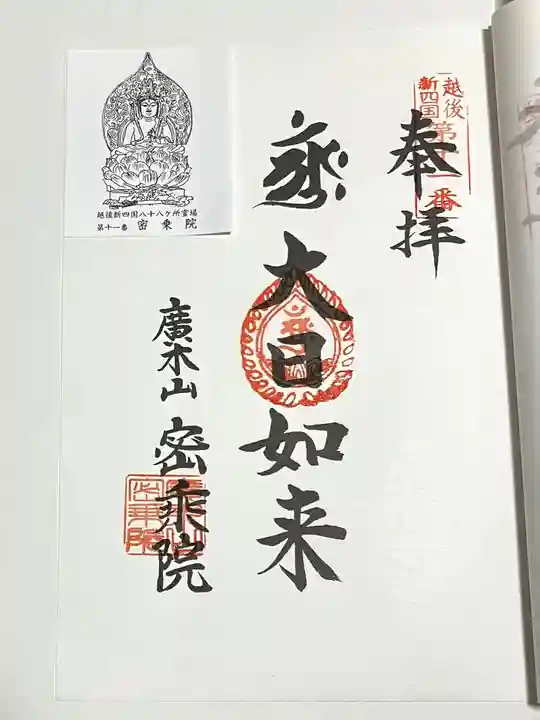 越後
新四国
第十一番
奉拝
大日如来
廣木山
密乗院
越後新四国八十八ケ所霊場
第十一番 密乗院